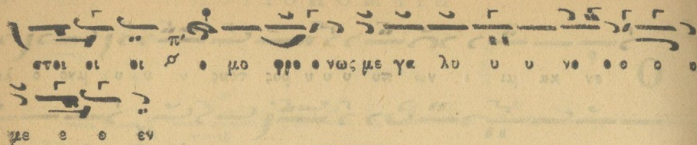 ετοι οι οι π' ο μο φρο ο νως με γα λυ υ υ νο ο ο ο ο
με ε ο εν